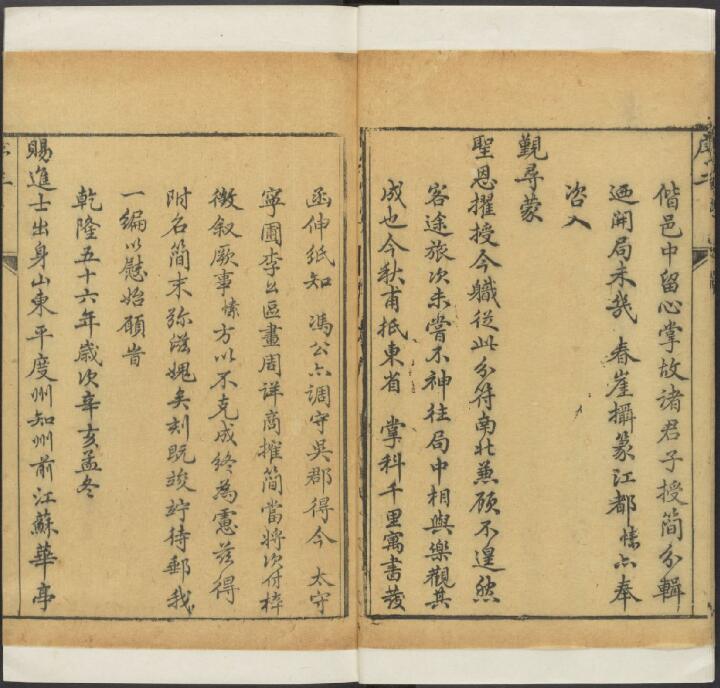 偕邑中留心掌故諸君子授簡分輯
迺開局未幾 春崖攝篆江都愫亦奉
咨入
覲尋蒙
聖恩擢授今職從此分符南北蒹顧不遑然
客途旅次未嘗不神往局中相與樂觀其
成也今秋甫抵東省 掌科千里寓書發
函伸紙知 馮公亦調守吳郡得今 太守
寧圃李公區畫周詳商搉簡當將次付梓
徵叙厥事愫方以不克成終為慮茲得
附名簡末弥滋媿矣刻既竣竚待郵我
一編以慰始願旹
乾隆五十六年歲次辛亥孟冬
賜進士出身山東平度州知州前江蘇華亭
序二